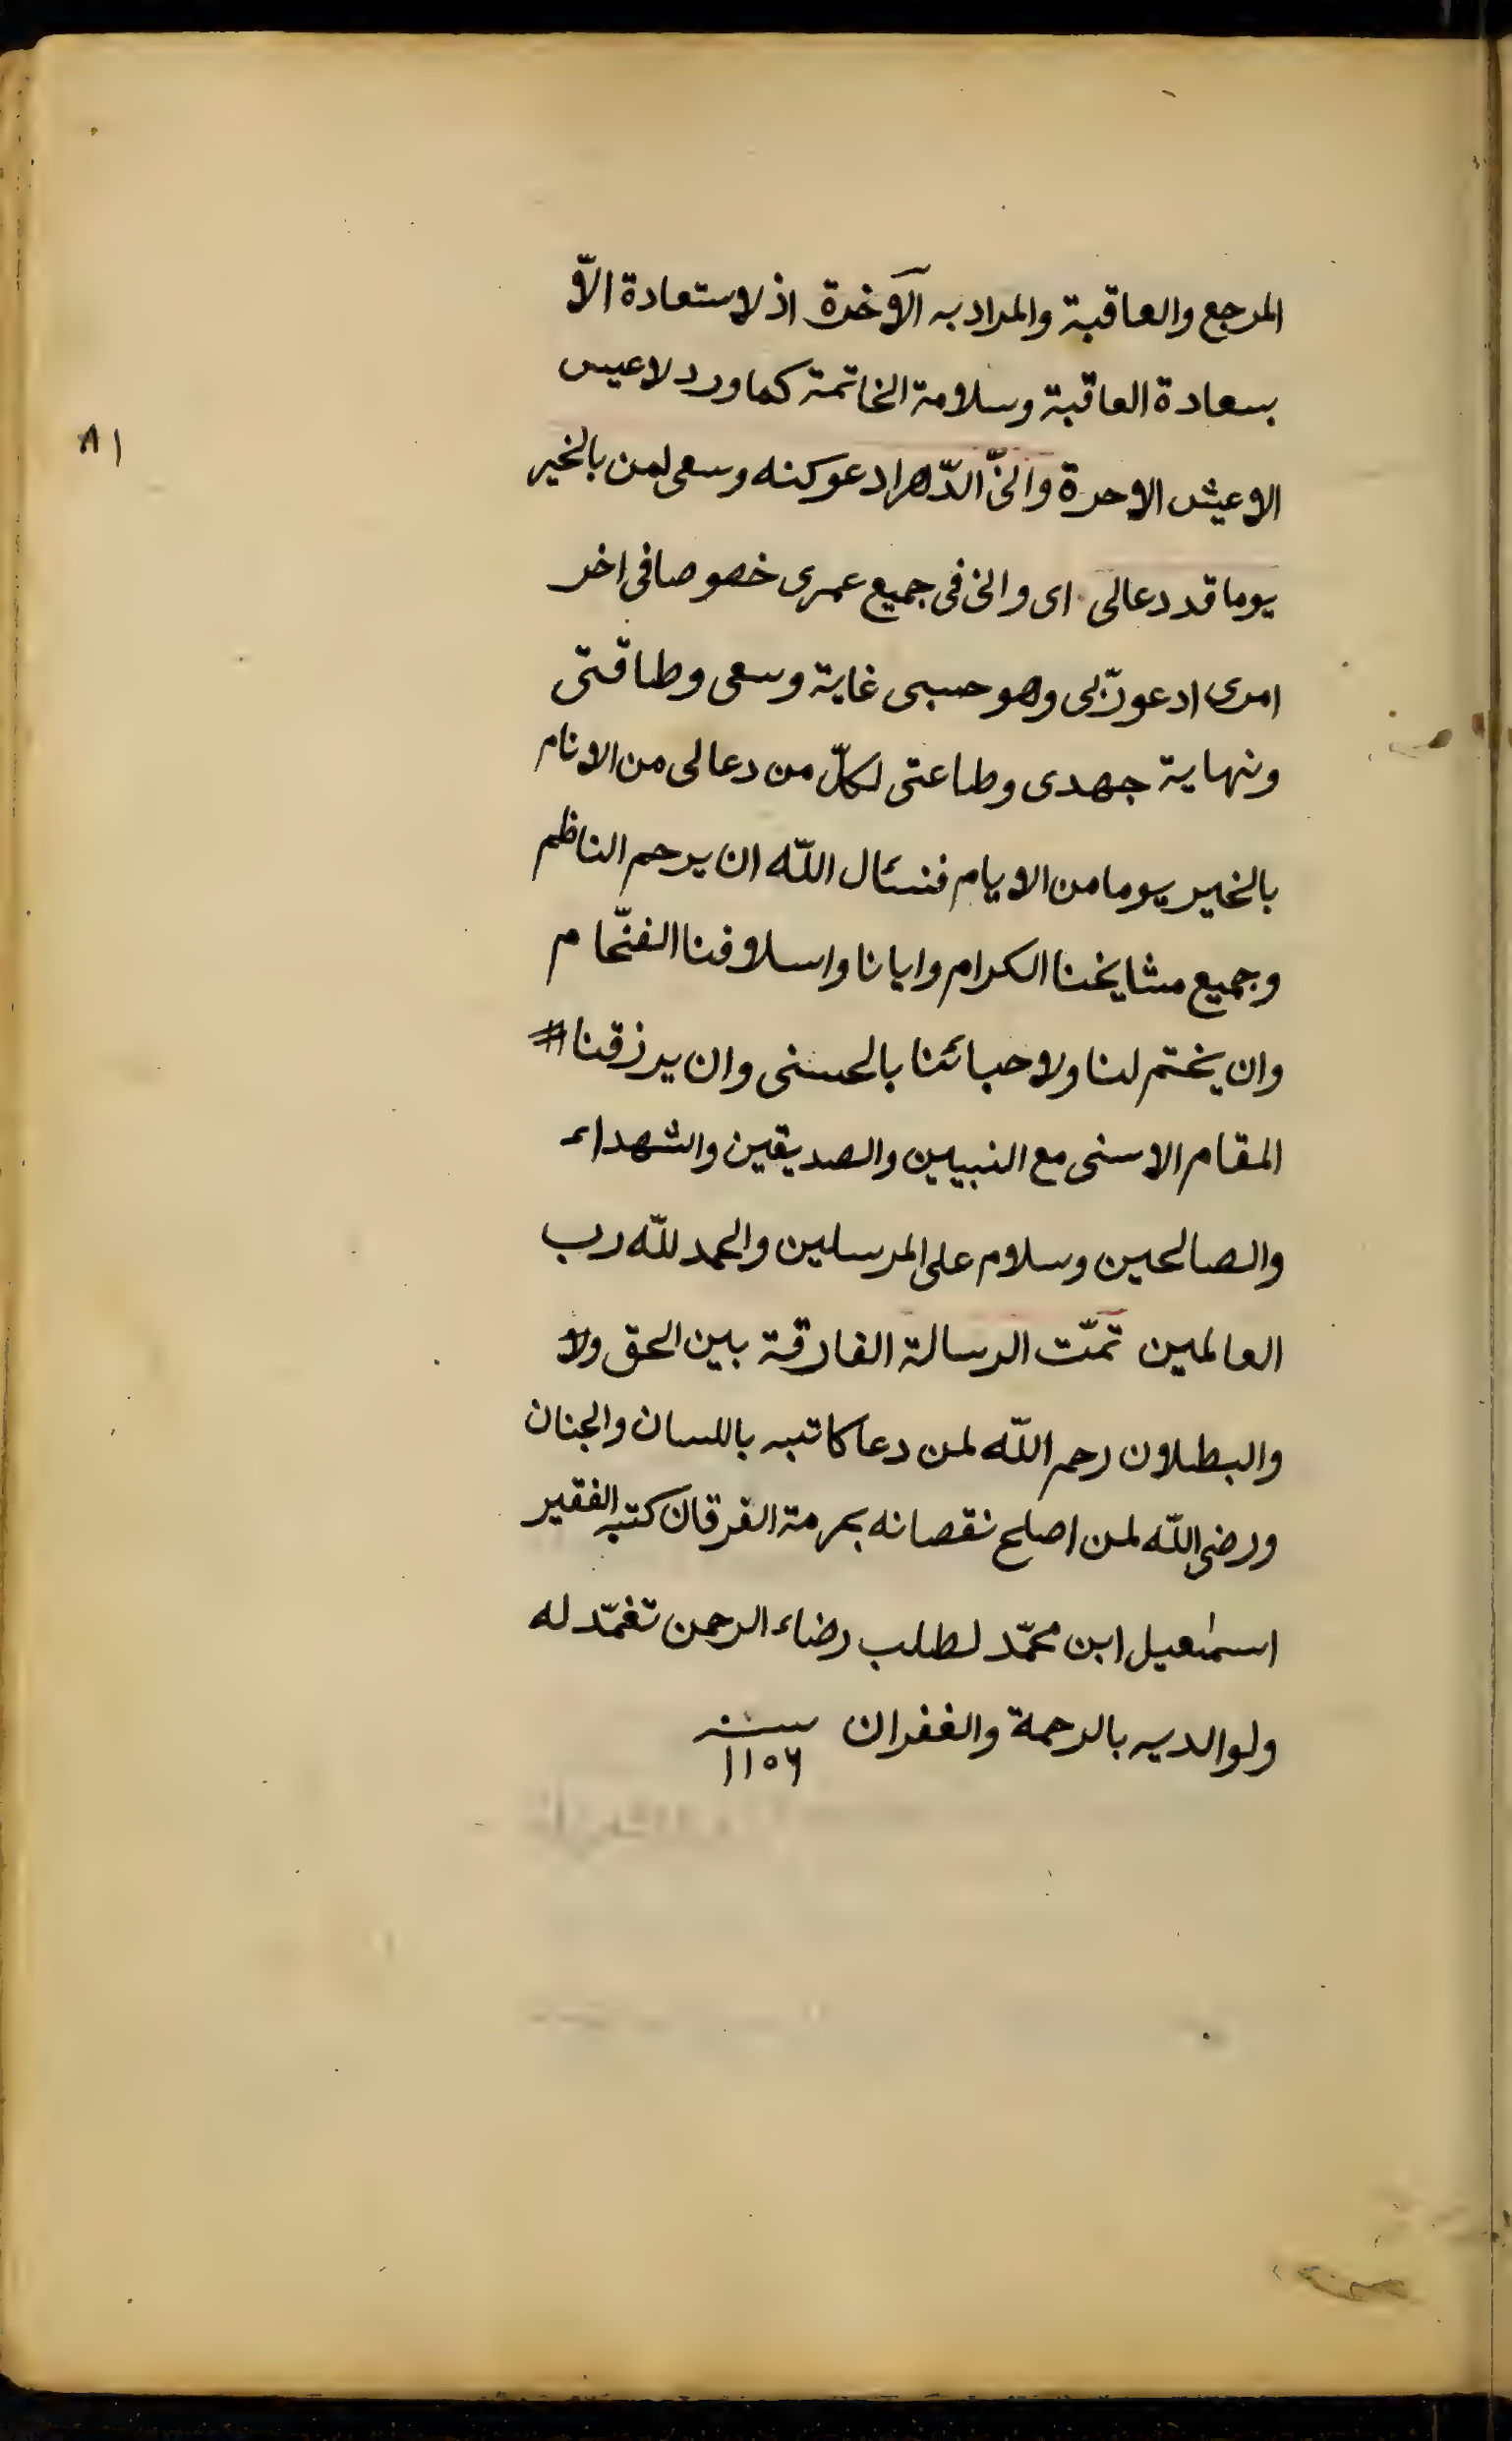 المرجع والعاقبة والمراد به الآخرة اذ لاستعادة الّا
بسعادة العاقبة وسلامة الخاتمة كما ورد لاعيس
الاعيش الاحرة وانّى الدّهر ادعو كنه وسعى لمن بالخير
يوما قد دعالى اى وانى فى جميع عمرى خصوصا فى اخر
امرى ادعو ربّى وهو حسبى غاية وسعى وطاقتى
ونهاية جهدى وطاعتى لكلّ من دعا لى من الانام
بالخير يوما من الايام فنسئال اللّه ان يرحم الناظم
وجميع مشايخنا الكرام وابانا واسلافنا الفخّام
وان يختم لنا ولاحبائنا بالحسنى وان يرزقنا
المقام الاسنى مع النبيين والصديقين والشهداء
والصالحين وسلام على المرسلين والحمد للّه رب
العالمين تمّت الرسالة الفارقة بين الحق ولا
والبطلان رحم اللّه لمن دعا كاتبه باللسان والجنان
ورضى اللّه لمن اصلح نقصانه بحرمة الفرقان كتبه الفقير
اسمٰعيل ابن محمّد لطلب رضاء الرحمن تغمّد له
ولوالديه بالرحمة والغفران سنة
١١٥٦
٨١